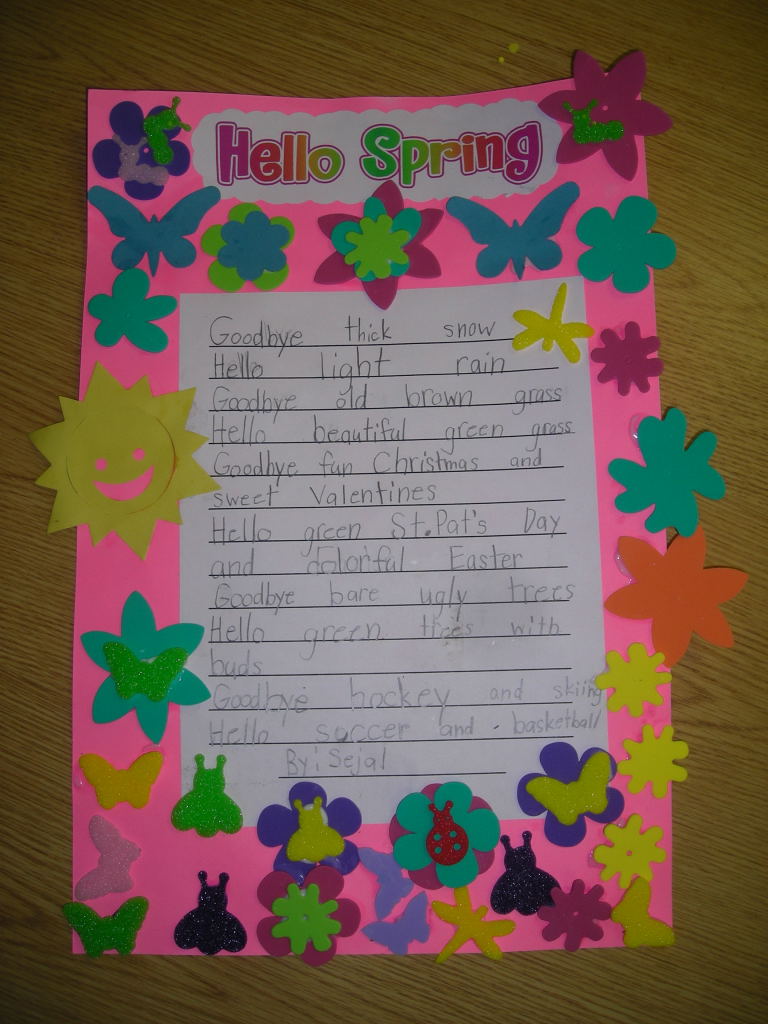 Hello Spring
Goodbye thick snow
Hello light rain
Goodbye old brown grass
Hello beautiful green grass
Goodbye fun Christmas and
sweet Valentines
Hello green St.Pat's Day
and colorful Easter
Goodbye bare ugly trees
Hello green trees with
buds
Goodbye hockey and skiing
Hello soccer and basketball
By: Sejal